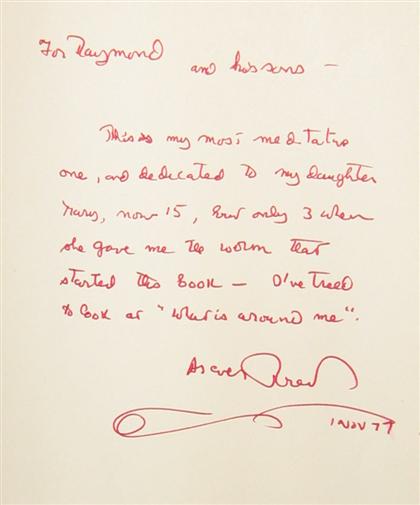 For Raymond and his sons —
This is my most meditative
one, and dedicated to my daughter
now 15, but only 3 when
she gave me the worm that
started this book — I've tried
to look at "what is around me".
As ever
1 NOV 77